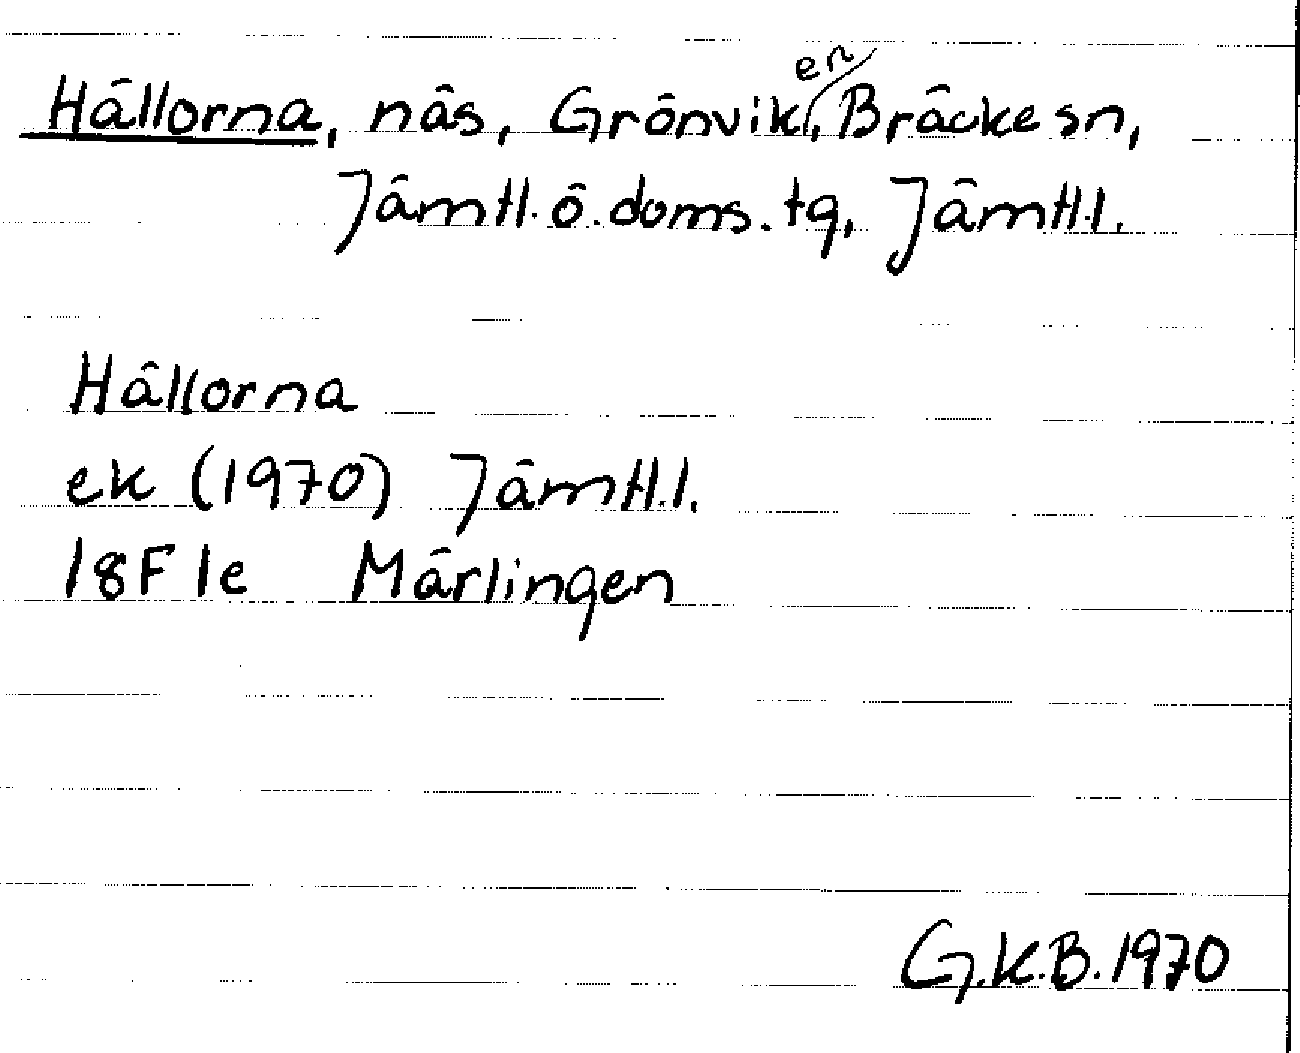 Hällorna, näs, Grönviken, Bräcke sn,
Jämtl. ö. doms. tg, Jämtl.l.
Hällorna
ek (1970) Jämtl.l.
18F 1e Märlingen
G.K.B. 1970